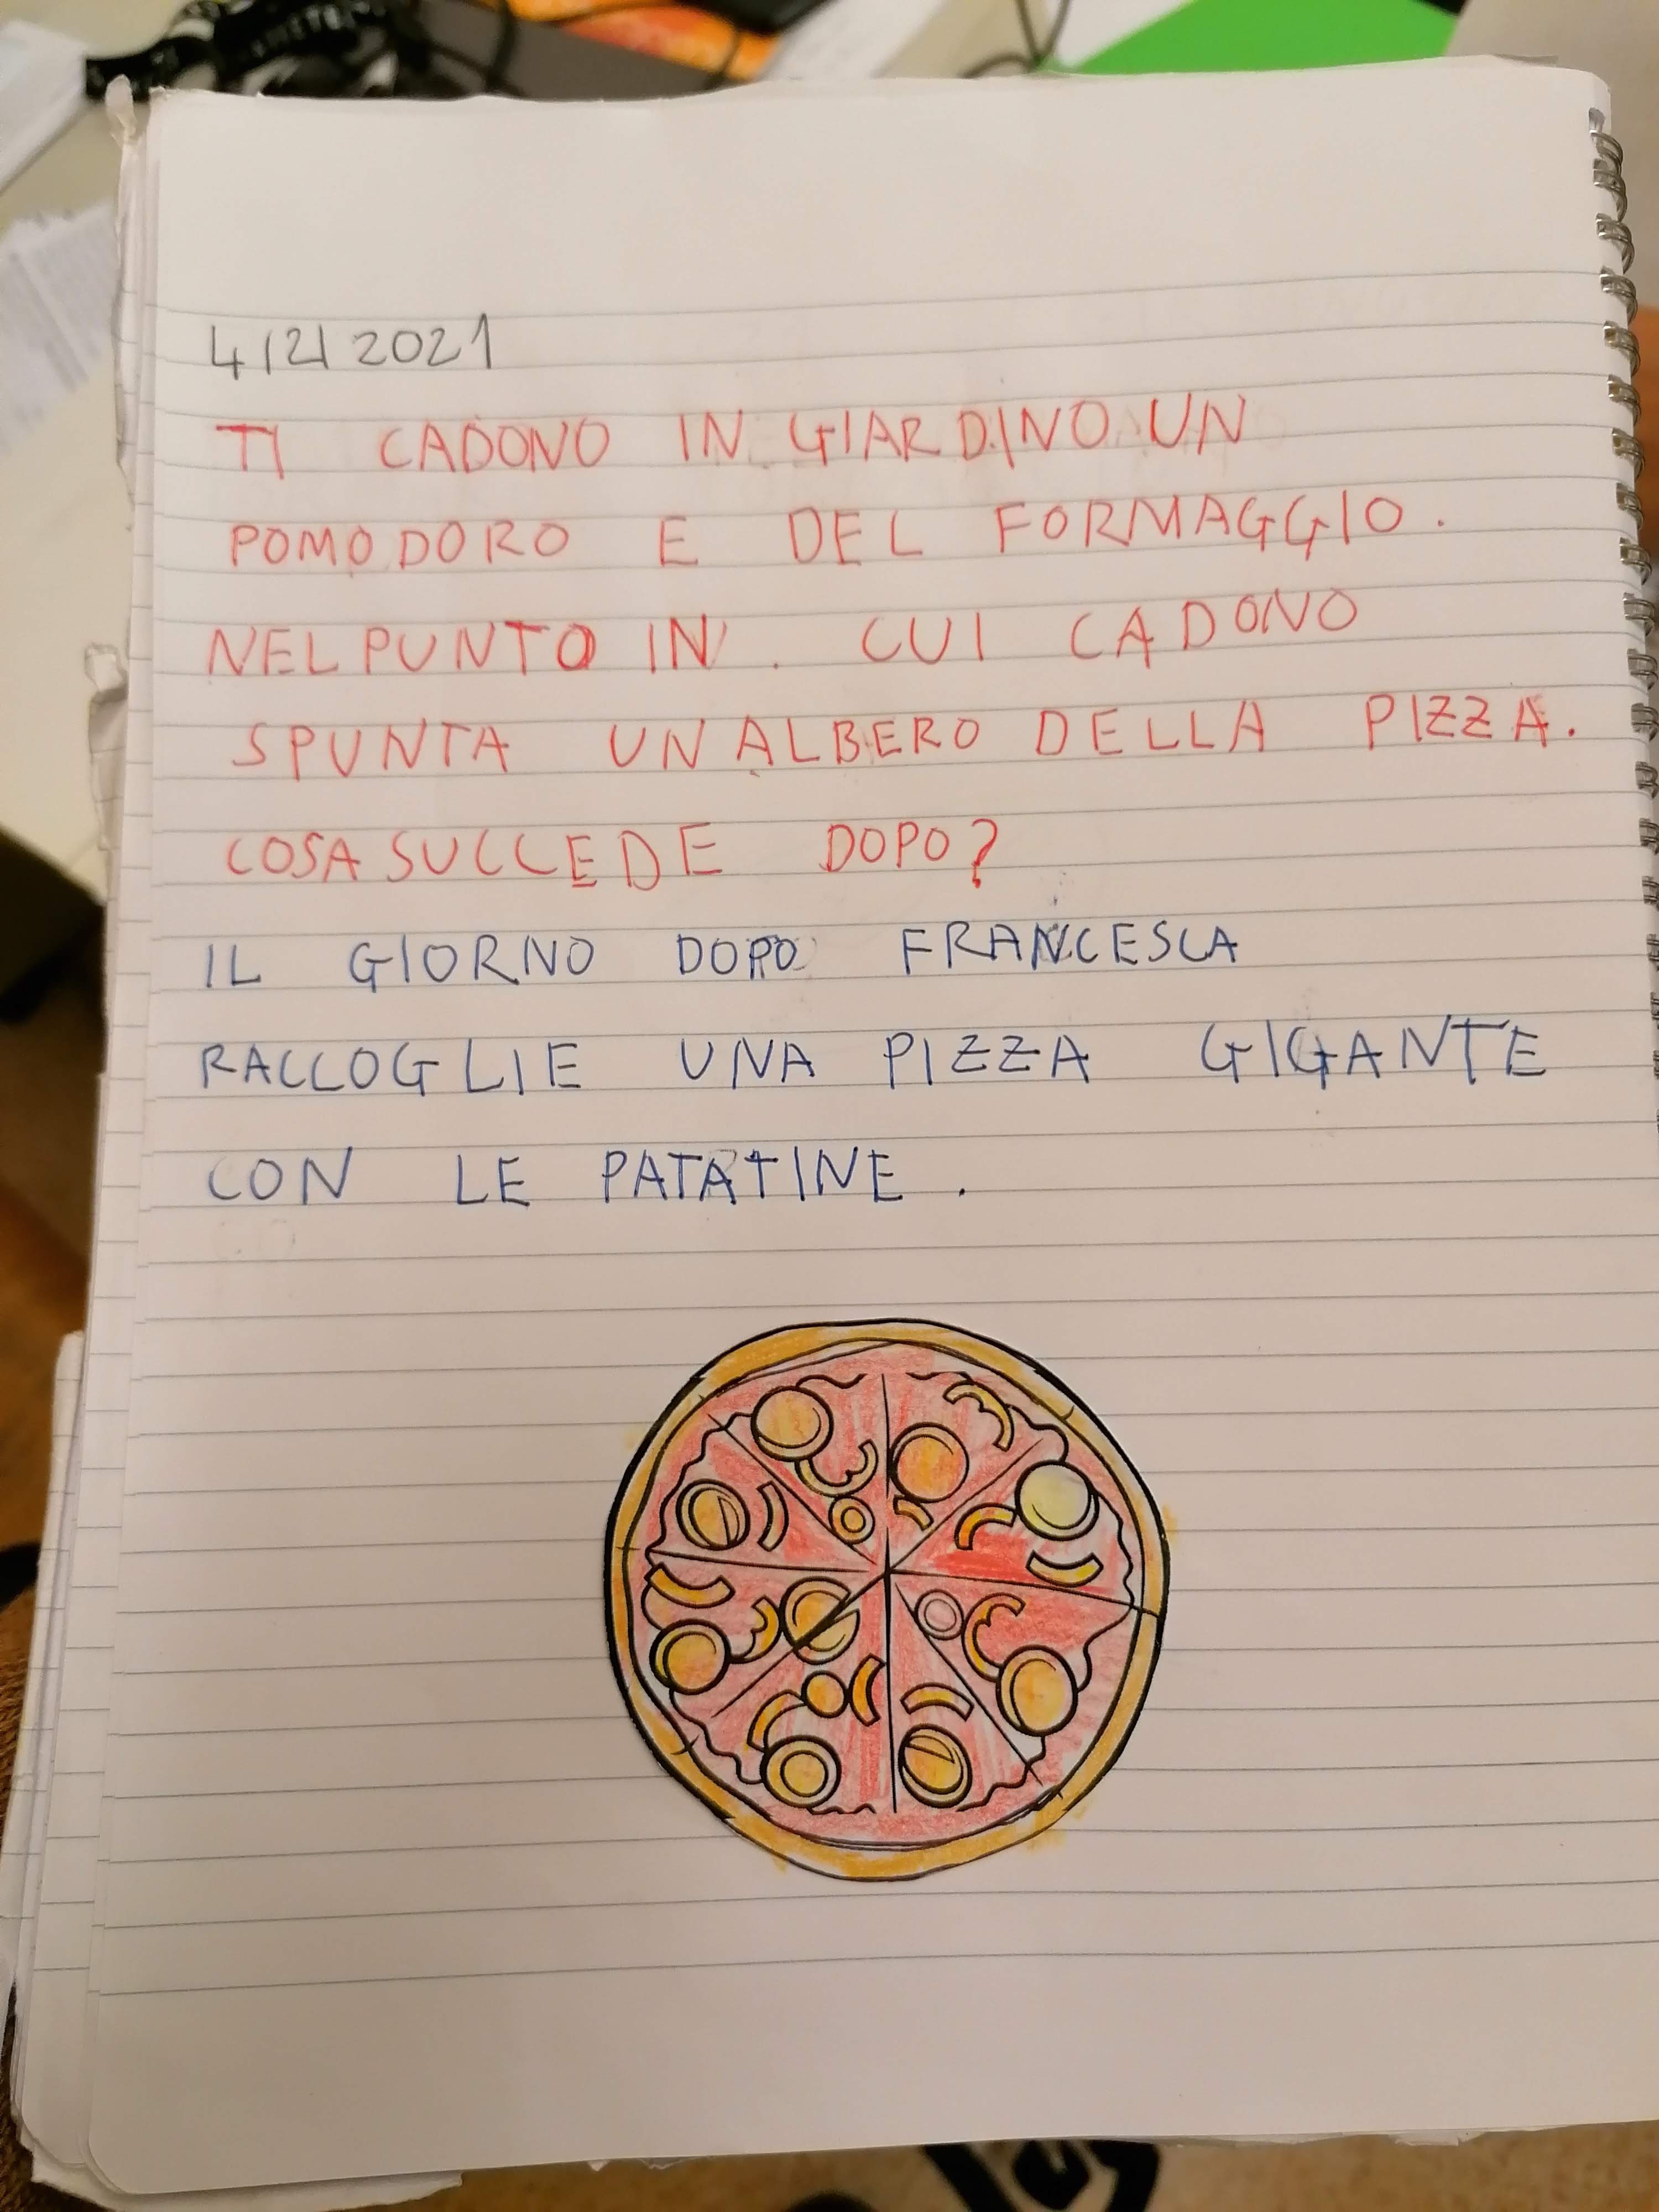 4/2/2021
TI CADONO IN GIARDINO UN
POMODORO E DEL FORMAGGIO.
NEL PUNTO IN CUI CADONO
SPUNTA UN ALBERO DELLA PIZZA.
COSA SUCCEDE DOPO?
IL GIORNO DOPO FRANCESCA
RACCOGLIE UNA PIZZA GIGANTE
CON LE PATATINE.